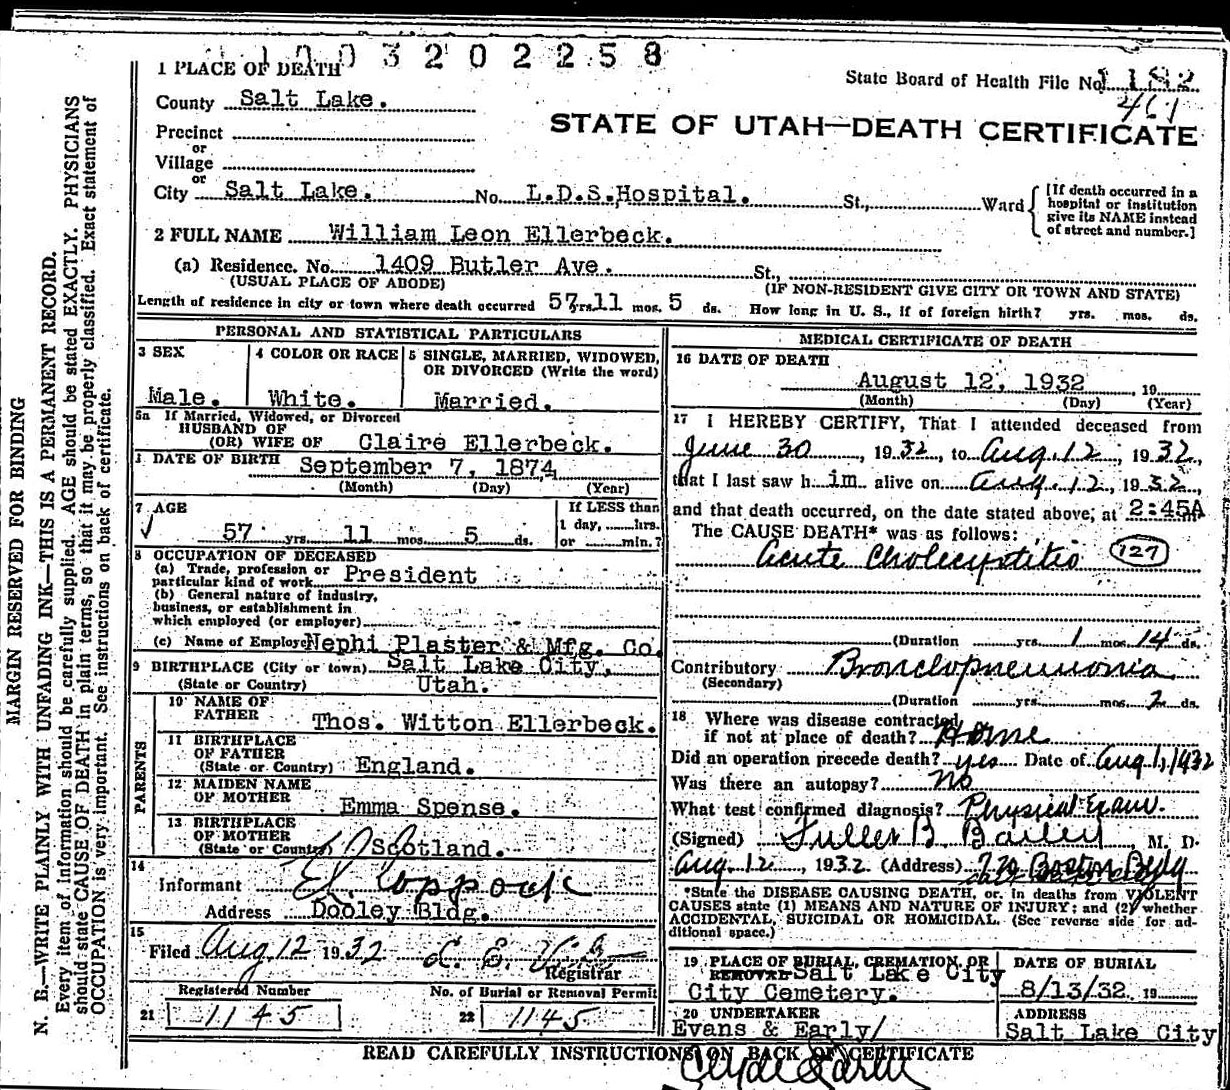 1003202258
1 PLACE OF DEATH
State Board of Health File No. 1182
461
County Salt Lake.
STATE OF UTAH—DEATH CERTIFICATE
Precinct
or
Village
or
City Salt Lake. No. L.D.S.Hospital. St., Ward
[If death occurred in a
hospital or institution
give its NAME instead
of street and number.]
2 FULL NAME William Leon Ellerbeck.
(a) Residence. No. 1409 Butler Ave. St.,
(USUAL PLACE OF ABODE) (IF NON-RESIDENT GIVE CITY OR TOWN AND STATE)
Length of residence in city or town where death occurred 57 yrs. 11 mos. 5 ds. How long in U. S., if of foreign birth? yrs. mos. ds.
PERSONAL AND STATISTICAL PARTICULARS
3 SEX
Male.
4 COLOR OR RACE
White.
5 SINGLE, MARRIED, WIDOWED,
OR DIVORCED (Write the word)
Married.
5a If Married, Widowed, or Divorced
HUSBAND OF
(OR) WIFE OF Claire Ellerbeck.
DATE OF BIRTH September 7, 1874
(Month) (Day) (Year)
7 AGE
57 yrs. 11 mos. 5 ds.
If LESS than
1 day, hrs.
or min.?
8 OCCUPATION OF DECEASED
(a) Trade, profession or
particular kind of work President
(b) General nature of industry,
business, or establishment in
which employed (or employer)
(c) Name of Employer Nephi Plaster & Mfg. Co.
9 BIRTHPLACE (City or town) Salt Lake City,
(State or Country) Utah.
PARENTS
10 NAME OF
FATHER Thos. Witton Ellerbeck.
11 BIRTHPLACE
OF FATHER
(State or Country) England.
12 MAIDEN NAME
OF MOTHER Emma Spense.
13 BIRTHPLACE
OF MOTHER
(State or Country) Scotland.
14
Informant Coppock
Address Dooley Bldg.
15
Filed Aug 12 1932
Registrar
Registered Number
21 1145
No. of Burial or Removal Permit
22 1145
MEDICAL CERTIFICATE OF DEATH
16 DATE OF DEATH
August 12, 1932 19
(Month) (Day) (Year)
17 I HEREBY CERTIFY, That I attended deceased from
June 30, 1932, to Aug. 12, 1932,
that I last saw h im alive on Aug. 12, 1932,
and that death occurred, on the date stated above, at 2:45A
The CAUSE DEATH* was as follows:
Acute Cholecystitis 127
(Duration yrs. 1 mos. 14 ds.
Contributory Bronchopneumonia
(Secondary)
(Duration yrs. mos. 2 ds.
18 Where was disease contracted
if not at place of death? Home
Did an operation precede death? yes Date of Aug 1, 1932
Was there an autopsy? no
What test confirmed diagnosis? Physical Exam.
(Signed) Fuller B. Bailey, M. D.
Aug. 12, 1932 (Address) Boston Bldg
*State the DISEASE CAUSING DEATH, or, in deaths from VIOLENT
CAUSES state (1) MEANS AND NATURE OF INJURY; and (2) whether
ACCIDENTAL, SUICIDAL OR HOMICIDAL. (See reverse side for ad-
ditional space.)
19 PLACE OF BURIAL, CREMATION, OR
REMOVAL Salt Lake City
City Cemetery.
DATE OF BURIAL
8/13/32 19
20 UNDERTAKER
Evans & Early/
ADDRESS
Salt Lake City
READ CAREFULLY INSTRUCTIONS ON BACK OF CERTIFICATE
Clyde Early
MARGIN RESERVED FOR BINDING
N. B.—WRITE PLAINLY WITH UNFADING INK—THIS IS A PERMANENT RECORD.
Every item of information should be carefully supplied. AGE should be stated EXACTLY. PHYSICIANS
should state CAUSE OF DEATH in plain terms, so that it may be properly classified. Exact statement of
OCCUPATION is very important. See instructions on back of certificate.